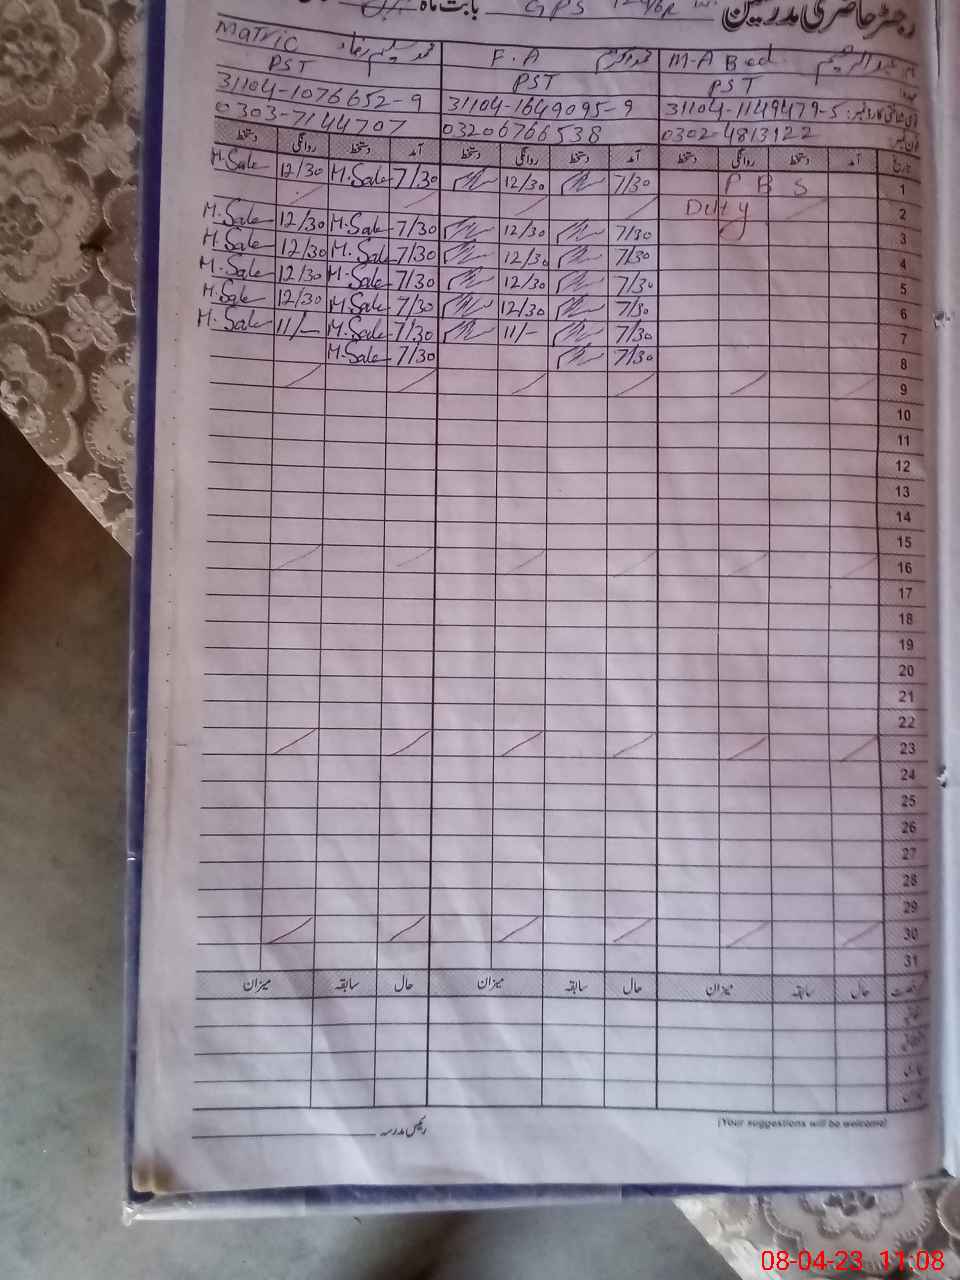 رجسٹر حاضری مدرسین GPS بابت ماہ
Matric F.A M.A B.ed
PST PST PST
31104-1076652-9 31104-1649095-9 31104-1149479-5
0303-7144707 03206766538 03024813122
دستخط روانگی دستخط آمد دستخط روانگی دستخط آمد دستخط روانگی دستخط آمد تاریخ
M.Sale 12/30 M.Sale 7/30 12/30 7/30 P B S 1
Duty 2
M.Sale 12/30 M.Sale 7/30 12/30 7/30 3
M.Sale 12/30 M.Sale 7/30 12/30 7/30 4
M.Sale 12/30 M.Sale 7/30 12/30 7/30 5
M.Sale 12/30 M.Sale 7/30 12/30 7/30 6
M.Sale 11/- M.Sale 7/30 11/- 7/30 7
M.Sale 7/30 7/30 8
9
10
11
12
13
14
15
16
17
18
19
20
21
22
23
24
25
26
27
28
29
30
31
میزان سابقہ حال میزان سابقہ حال میزان سابقہ حال
رئیس مدرسہ
(Your suggestions will be welcome)
08-04-23 11:08